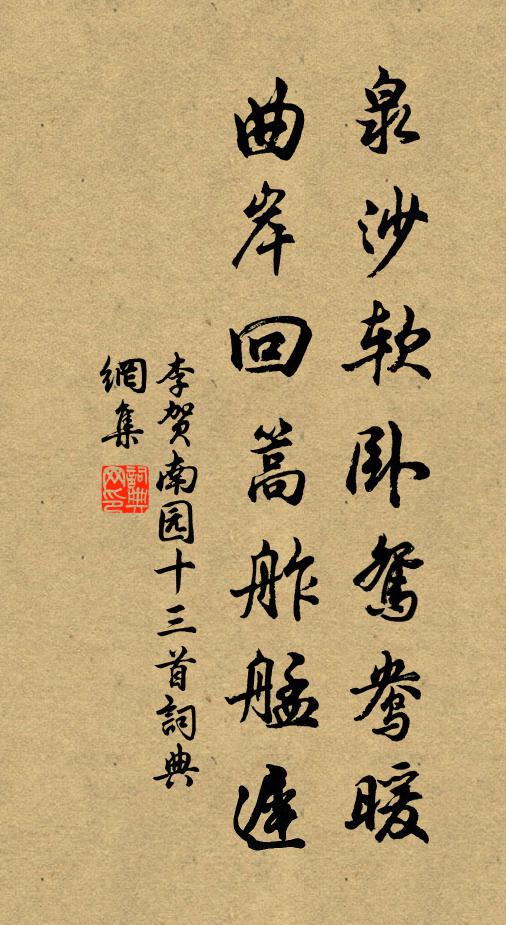 泉沙软卧鸳鸯暖
曲岸回篙舴艋迟
李贺南园十三首詞典
網集
詞典网印